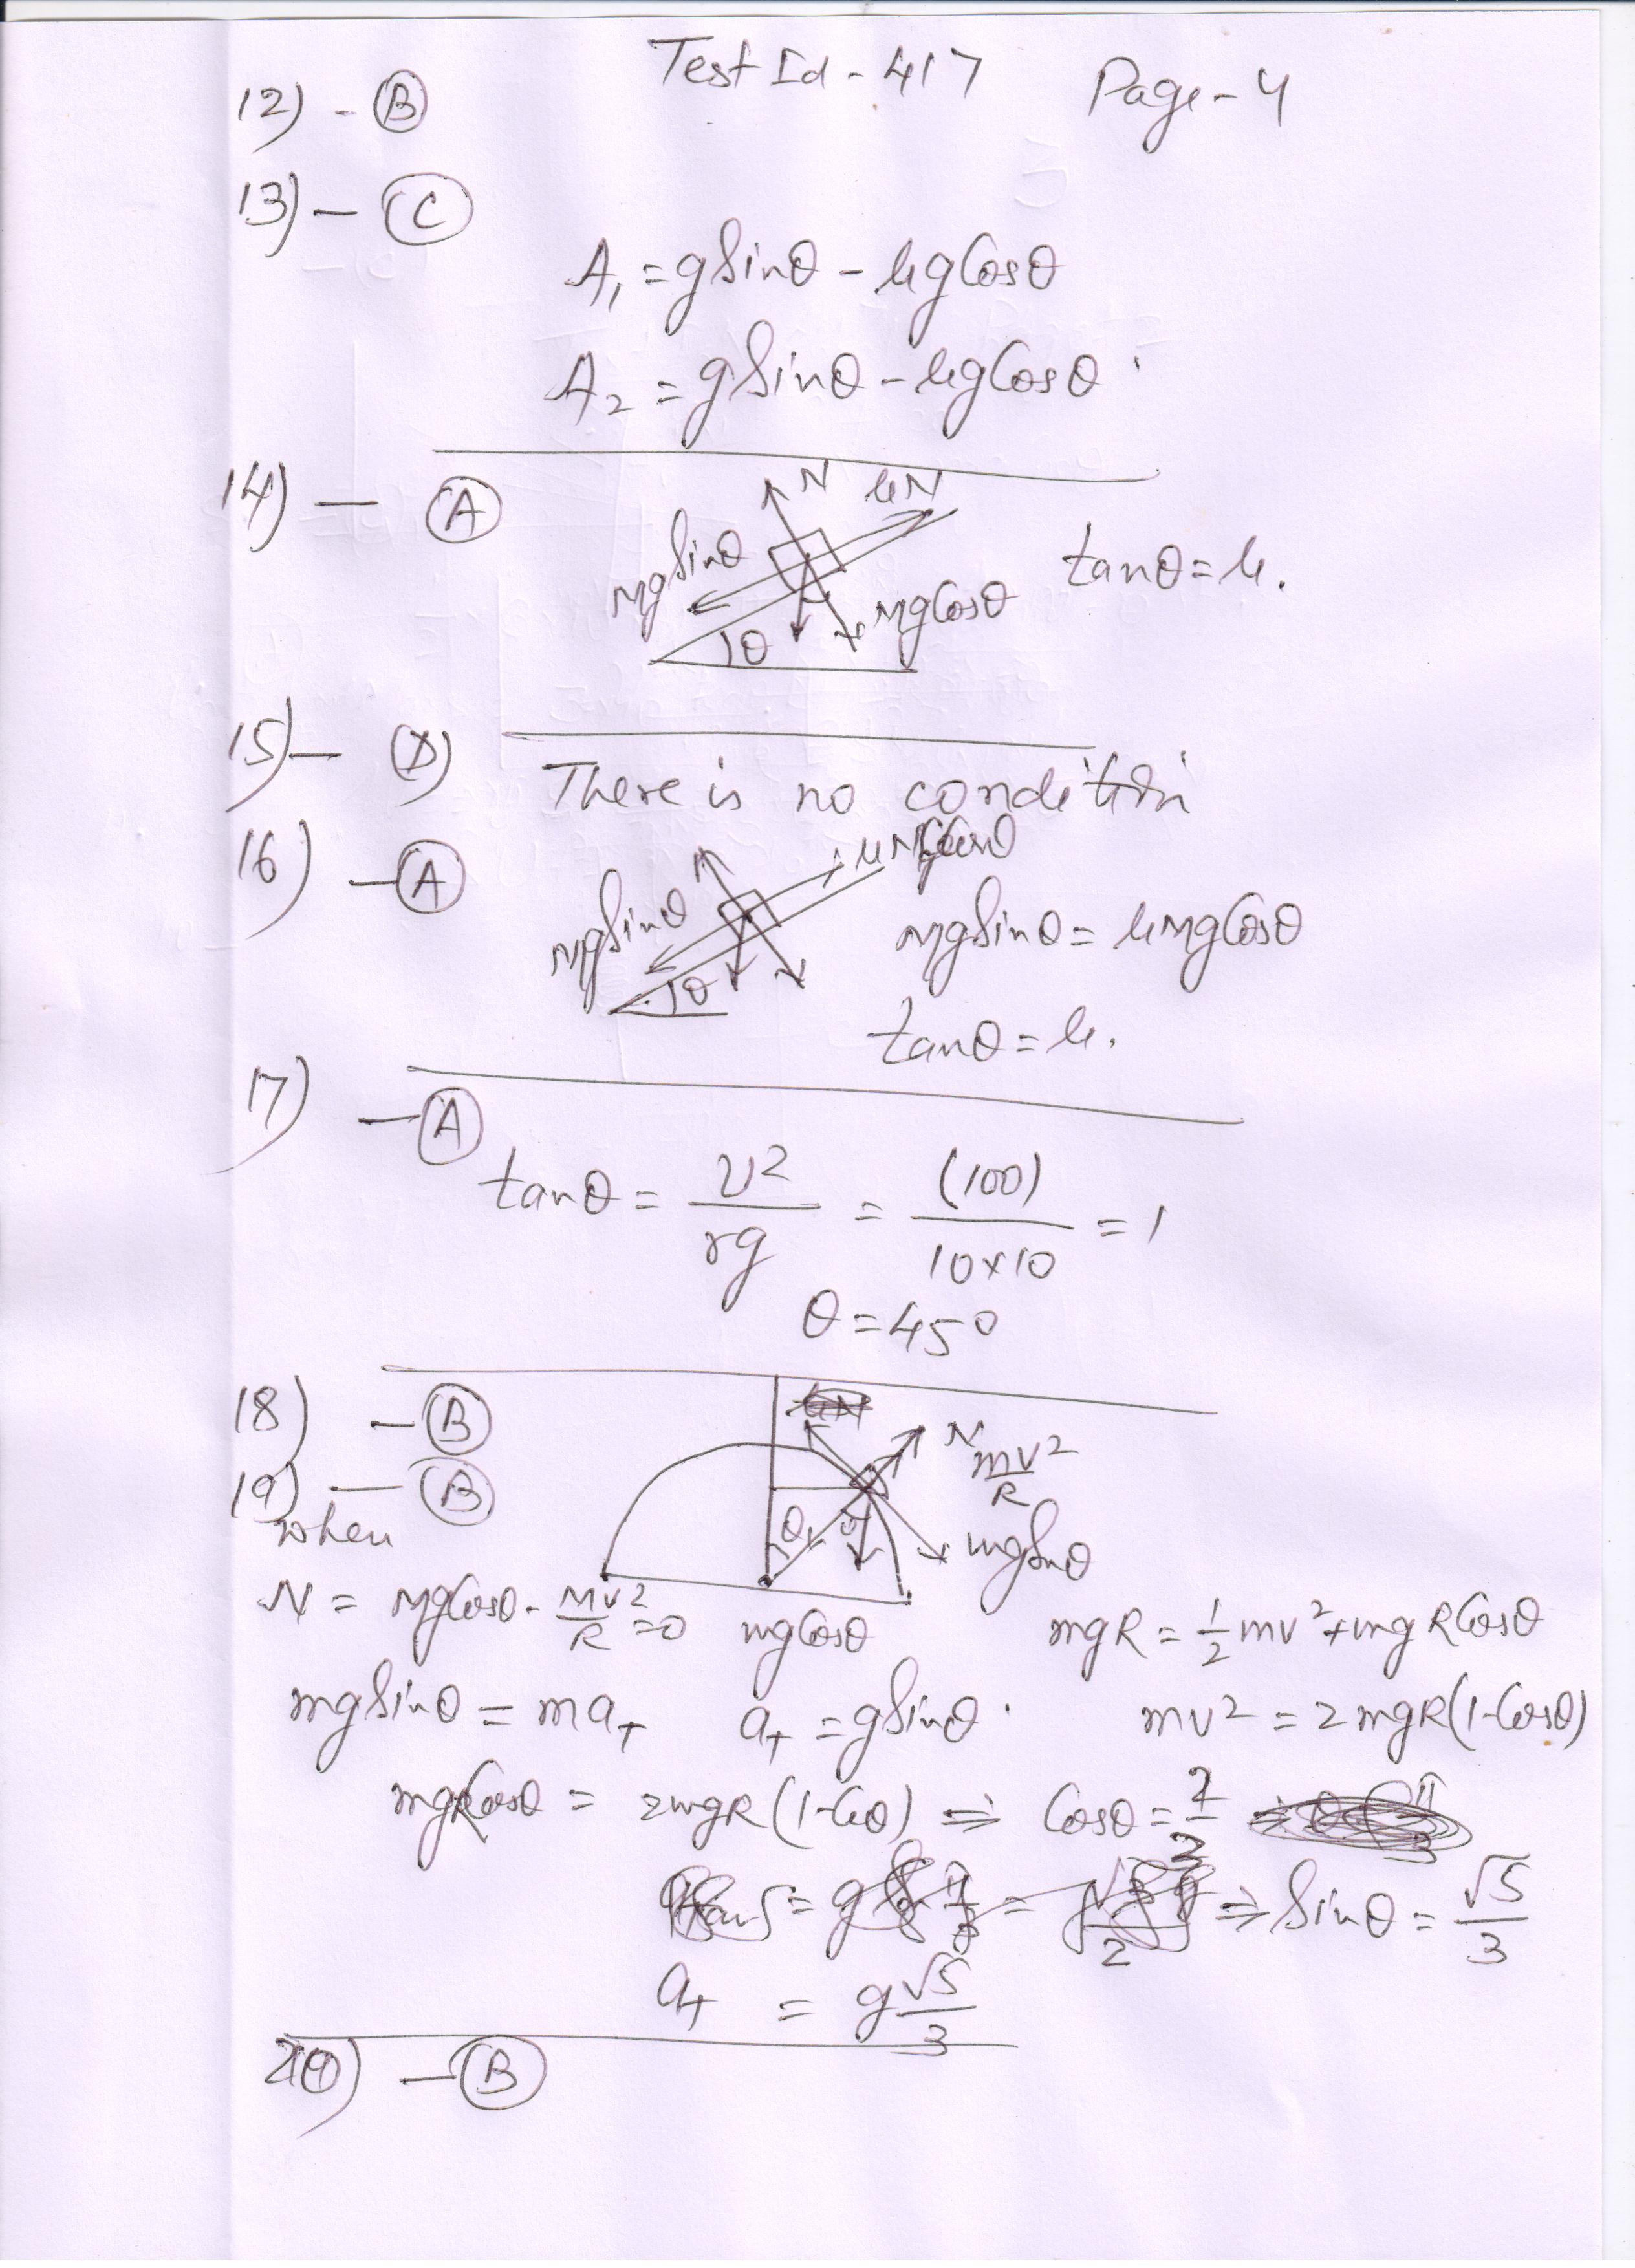 Test Id - 417 Page - 4
12) - B
13) - C
A₁ = g Sinθ - μg Cosθ
A₂ = g Sinθ - μg Cosθ
14) - A
N μN
Mg Sinθ
tanθ = μ.
Mg Cosθ
θ
15) - D There is no condition
16) - A
Mg Sinθ
Mg Sinθ = μMg Cosθ
θ
tanθ = μ.
17) - A
tanθ = v²/rg = (100)/10×10 = 1
θ = 45°
18) - B
N
mv²/R
19) - B
when
θ θ mg Sinθ
N = Mg Cosθ - Mv²/R = 0 mg Cosθ mgR = 1/2 mv² + mgR Cosθ
mg Sinθ = m a_T a_T = g Sinθ mv² = 2mgR(1-Cosθ)
mgR Cosθ = 2mgR(1-Cosθ) ⇒ Cosθ = 2/3
⇒ Sinθ = √5/3
a_T = g √5/3
20) - B